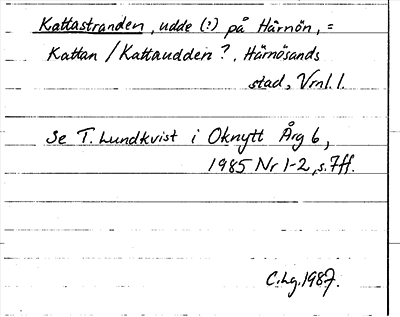 Kattastranden, udde (?) på Härnön, =
Kattan / Kattaudden?, Härnösands
stad, Vrnl. l.
Se T. Lundkvist i Oknytt Årg 6,
1985 Nr 1-2, s. 7ff.
C. Lg. 1987.